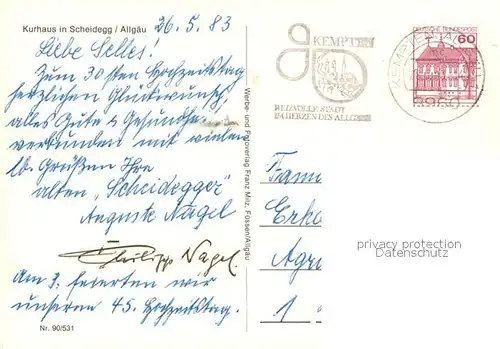 Kurhaus in Scheidegg / Allgäu
26.5.83
Liebe Selles!
Zum 30sten Hochzeitstag
herzlichen Glückwunsch,
alles Gute & Gesundhe.
verbunden mit vielen
lb. Grüßen Ihre
alten "Scheidegger"
Auguste Nagel
Philipp Nagel.
Am 3. feierten wir
unseren 45. Hochzeitstag.
Nr. 90/531
Werbe- und Fotoverlag Franz Milz, Füssen/Allgäu
KEMPTEN
REIZVOLLE STADT
IM HERZEN DES ALLGÄU
DEUTSCHE BUNDESPOST
60
KEMPTEN
8960
Fam
Erk
Agr
1
privacy protection
Datenschutz